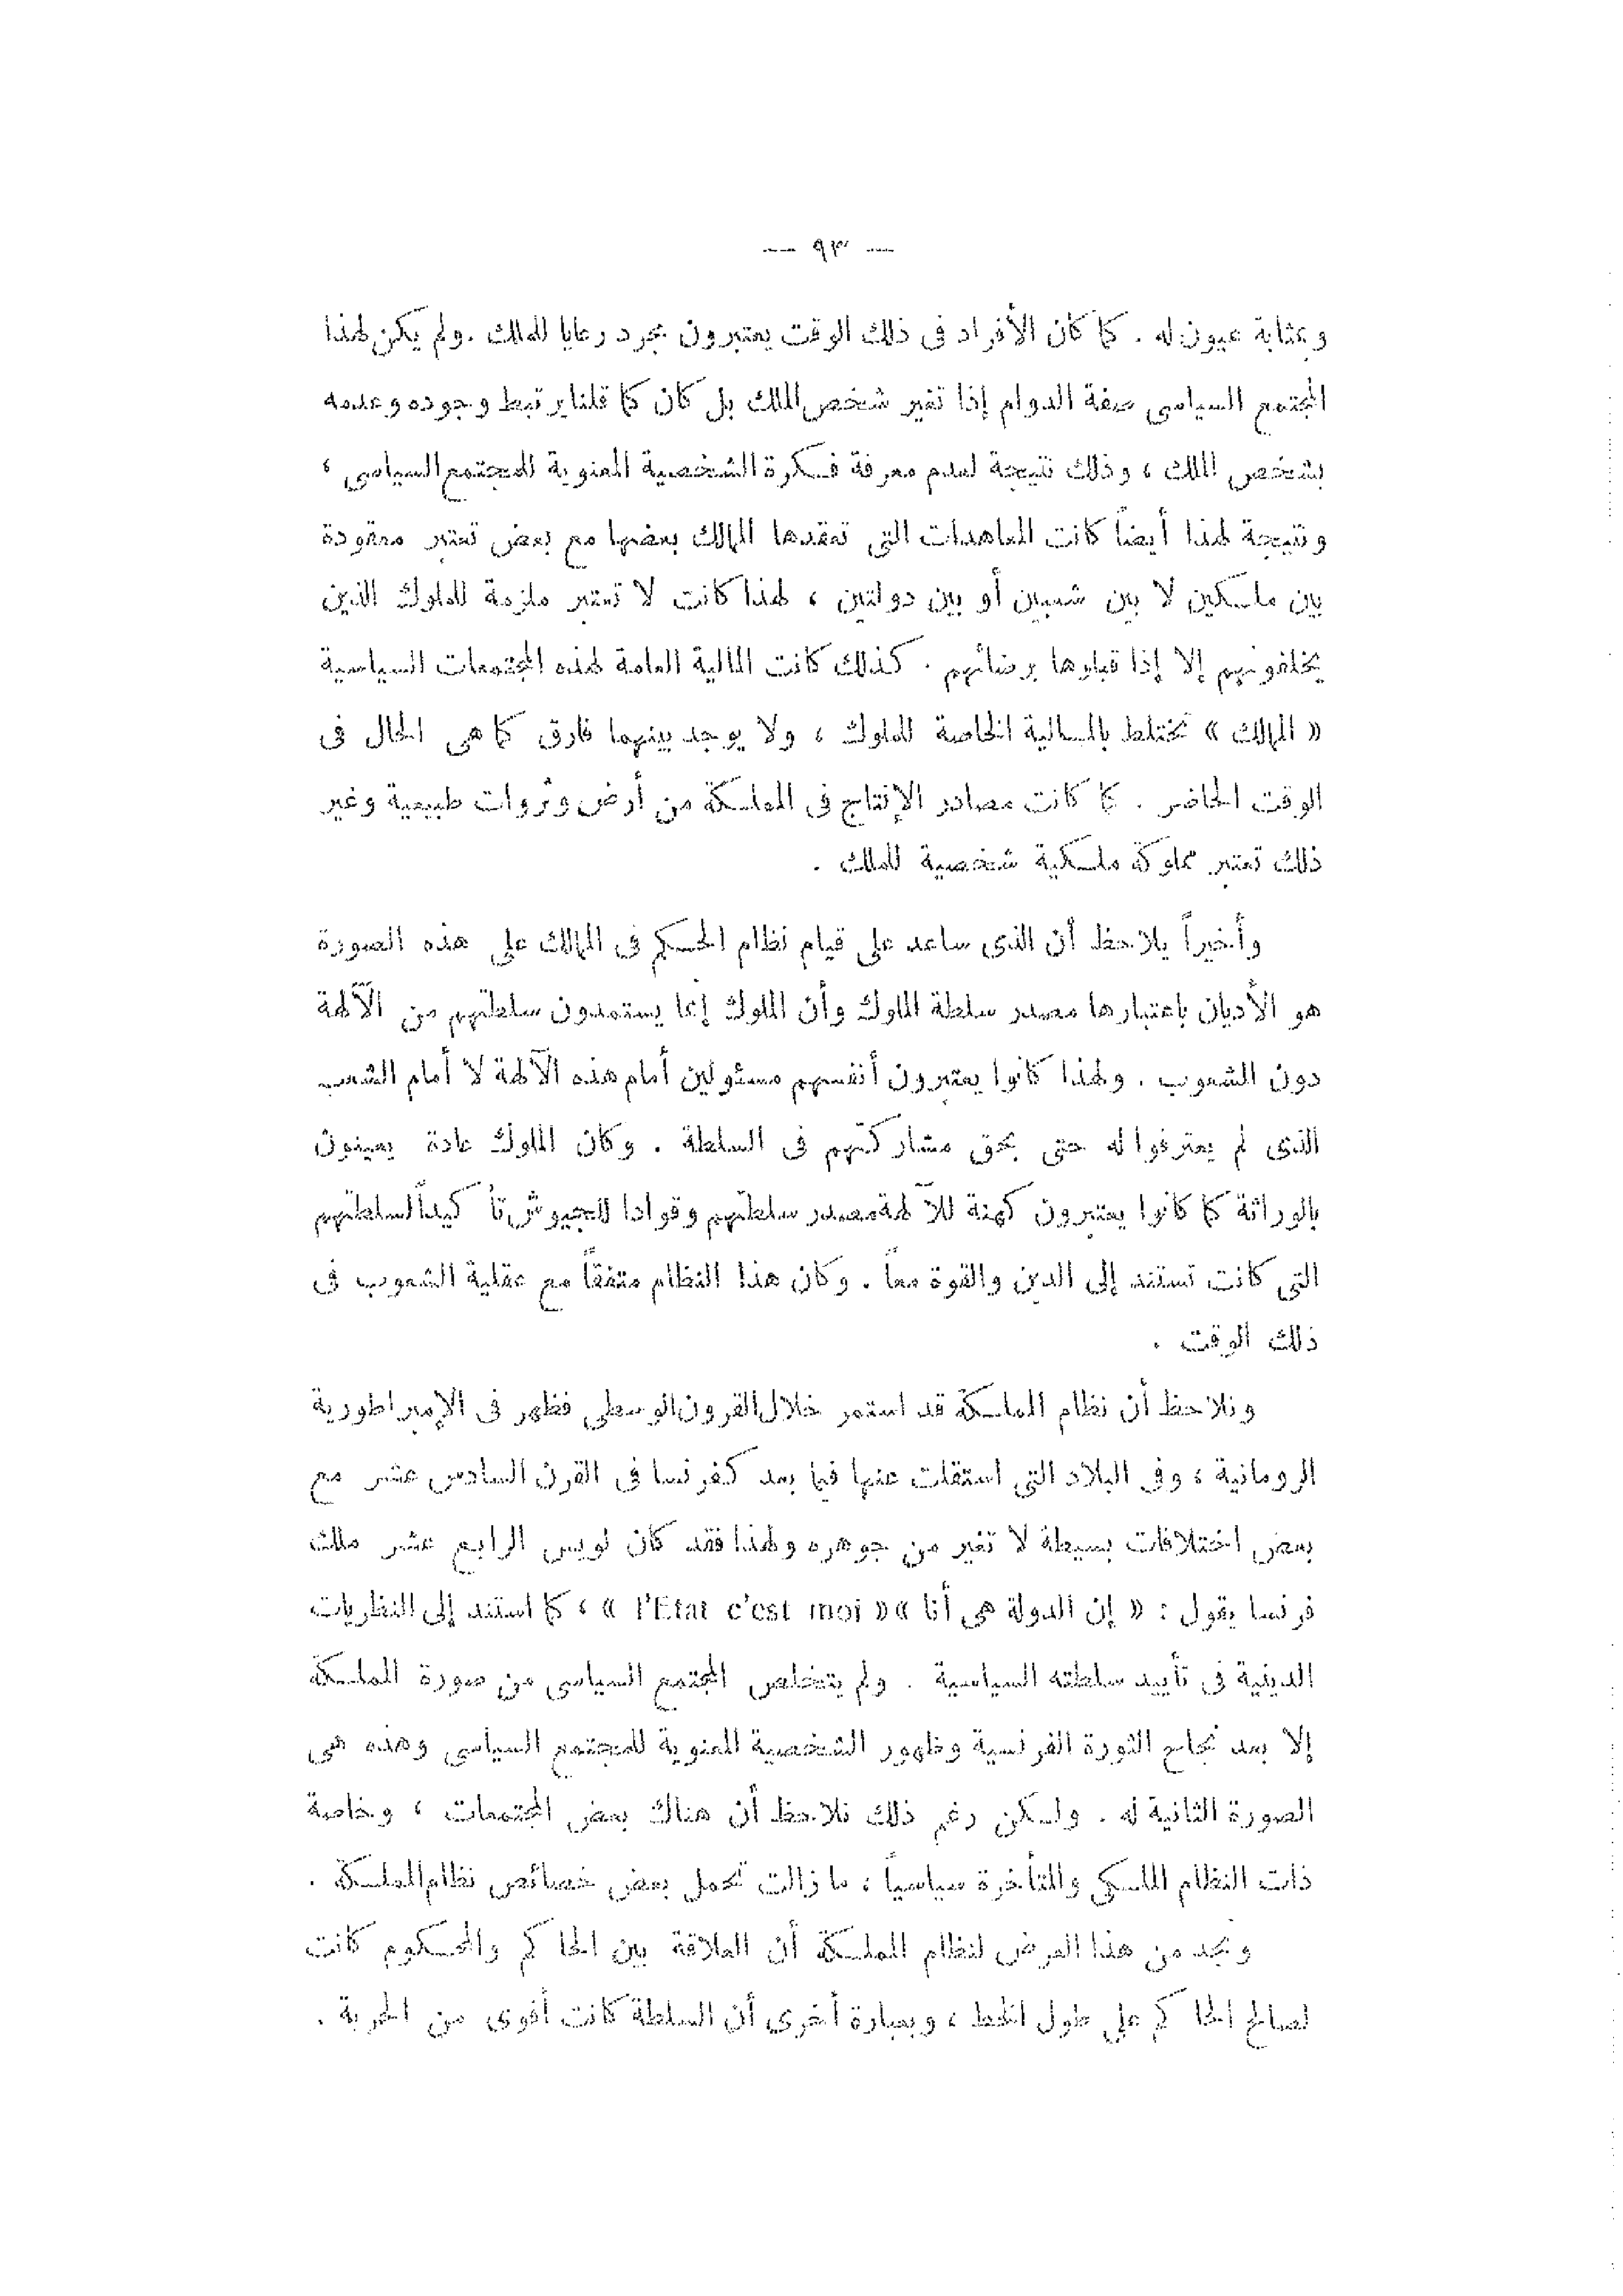 — ٩٣ —
وبمثابة عيون له . كما كان الأفراد فى ذلك الوقت يعتبرون مجرد رعايا للملك . ولم يكن لهذا
المجتمع السياسى صفة الدوام إذا تغير شخص الملك بل كان كما قلنا يرتبط وجوده وعدمه
بشخص الملك ، وذلك نتيجة لعدم معرفة فكرة الشخصية المعنوية للمجتمع السياسى ،
ونتيجة لهذا أيضاً كانت المعاهدات التى تعقدها الممالك بعضها مع بعض تعتبر معقودة
بين ملكين لا بين شعبين أو بين دولتين ، لهذا كانت لا تعتبر ملزمة للملوك الذين
يخلفونهم إلا إذا قبلوها برضائهم . كذلك كانت المالية العامة لهذه المجتمعات السياسية
« الممالك » تختلط بالمالية الخاصة للملوك ، ولا يوجد بينهما فارق كما هى الحال فى
الوقت الحاضر . كما كانت مصادر الإنتاج فى المملكة من أرض وثروات طبيعية وغير
ذلك تعتبر مملوكة ملكية شخصية للملك .
وأخيراً يلاحظ أن الذى ساعد على قيام نظام الحكم فى الممالك على هذه الصورة
هو الأديان باعتبارها مصدر سلطة الملوك وأن الملوك إنما يستمدون سلطتهم من الآلهة
دون الشعوب . ولهذا كانوا يعتبرون أنفسهم مسئولين أمام هذه الآلهة لا أمام الشعب
الذى لم يعترفوا له حتى بحق مشاركتهم فى السلطة . وكان الملوك عادة يعينون
بالوراثة كما كانوا يعتبرون كهنة للآلهة مصدر سلطتهم وقوادا للجيوش تأكيداً لسلطتهم
التى كانت تستند إلى الدين والقوة معاً . وكان هذا النظام متفقاً مع عقلية الشعوب فى
ذلك الوقت .
ونلاحظ أن نظام المملكة قد استمر خلال القرون الوسطى فظهر فى الإمبراطورية
الرومانية ، وفى البلاد التى استقلت عنها فيما بعد كفرنسا فى القرن السادس عشر مع
بعض اختلافات بسيطة لا تغير من جوهره ولهذا فقد كان لويس الرابع عشر ملك
فرنسا يقول : « إن الدولة هى أنا » « l'Etat c'est moi » ، كما استند إلى النظريات
الدينية فى تأييد سلطته السياسية . ولم يتخلص المجتمع السياسى من صورة المملكة
إلا بعد نجاح الثورة الفرنسية وظهور الشخصية المعنوية للمجتمع السياسى وهذه هى
الصورة الثانية له . ولكن رغم ذلك نلاحظ أن هناك بعض المجتمعات ، وخاصة
ذات النظام الملكى والمتأخرة سياسياً ، ما زالت تحمل بعض خصائص نظام المملكة .
ونجد من هذا العرض لنظام المملكة أن العلاقة بين الحاكم والمحكوم كانت
لصالح الحاكم على طول الخط ، وبعبارة أخرى أن السلطة كانت أقوى من الحرية .